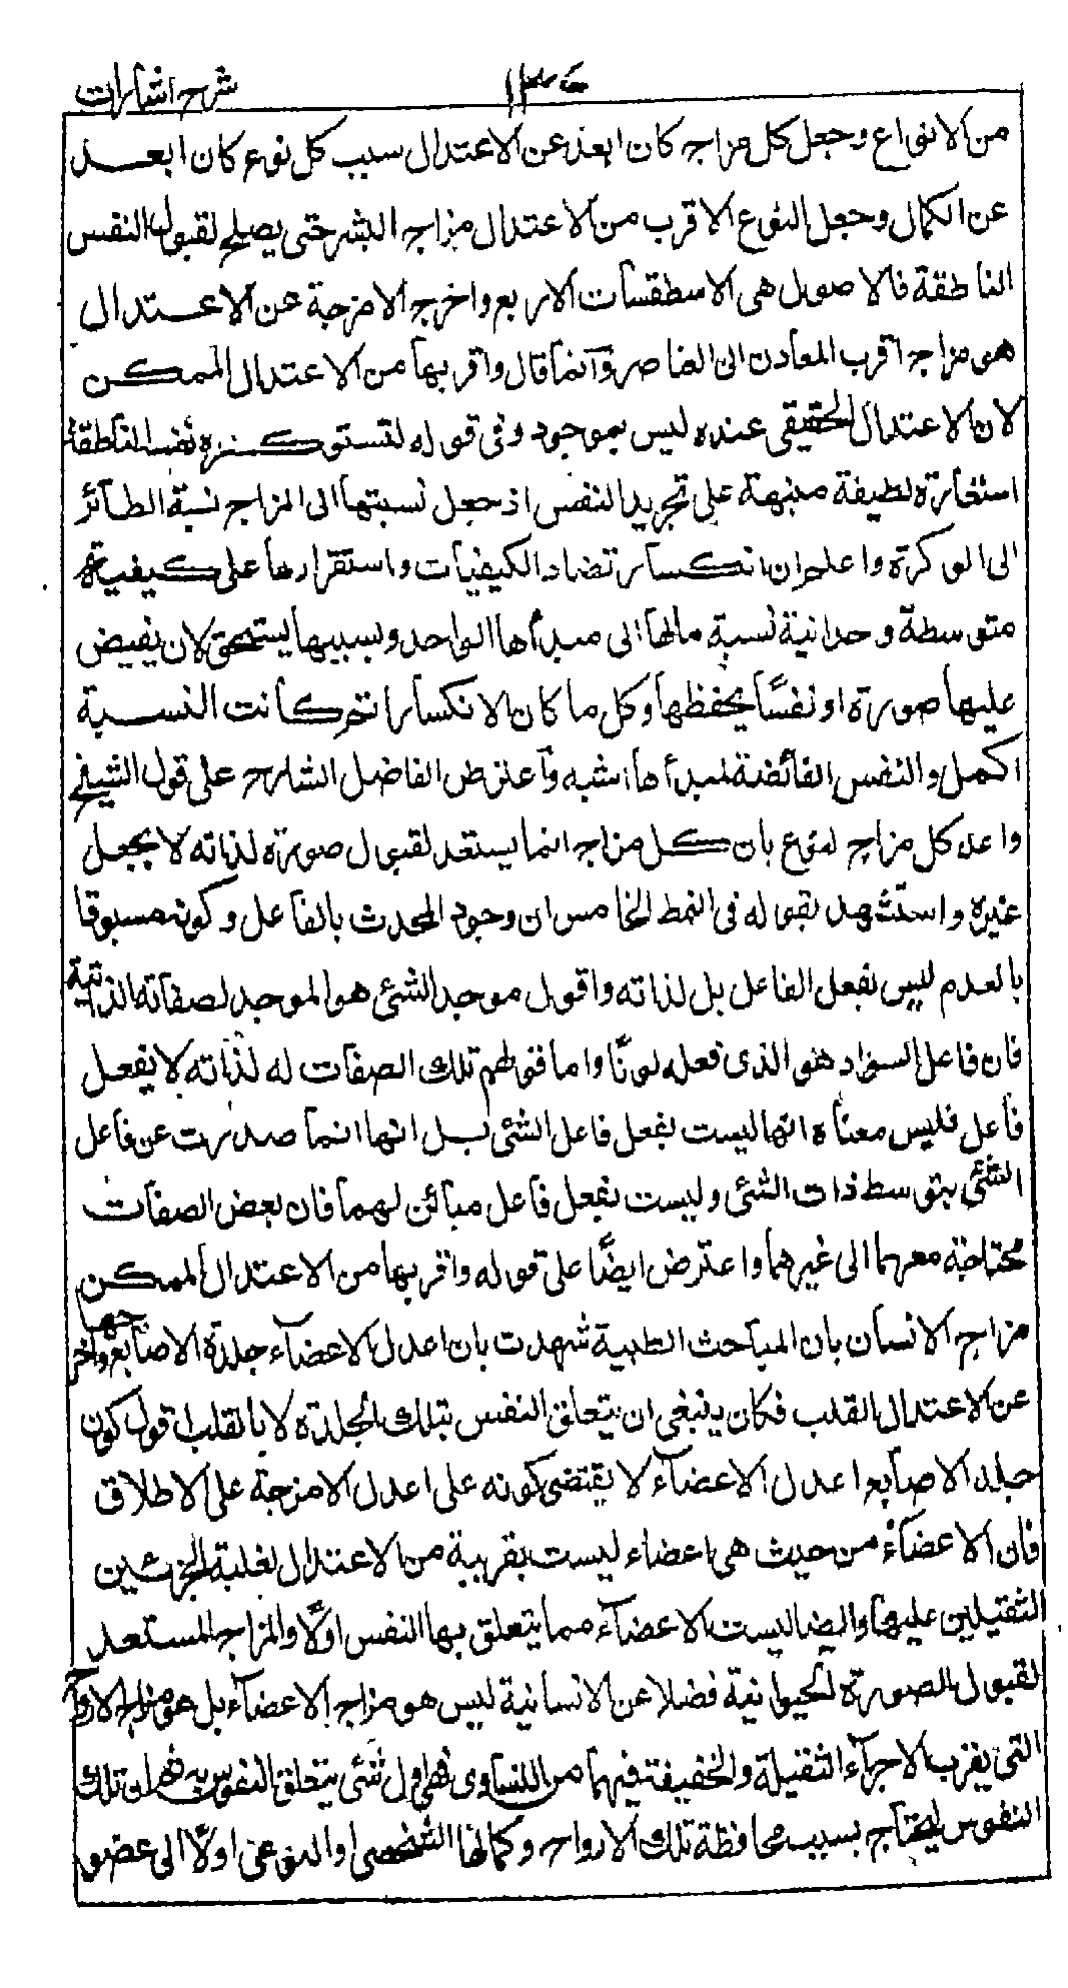 شرح اشارات
من الانواع وجعل كل مزاج كان ابعد عن الاعتدال سبب كل نوع كان ابعد
عن الكمال وجعل النوع الاقرب من الاعتدال مزاج البشر حتى يصلح لقبول النفس
الناطقة فالاصول هى الاسطقسات الاربع واخرج الامزجة عن الاعتدال
هو مزاج اقرب المعادن الى العناصر وانما قال واقربها من الاعتدال الممكن
لان الاعتدال الحقيقى عنده ليس بموجود وفى قوله لتستوكره نفسه الناطقة
استعارة لطيفة منبهة على تجريد النفس اذ جعل نسبتها الى المزاج نسبة الطائر
الى الوكر واعلم ان انكسار تضاد الكيفيات واستقرارها على كيفية
متوسطة وحدانية نسبة مالها الى مبدأها الواحد وبسببها يستحق لان يفيض
عليها صورة او نفسًا يحفظها وكل ما كان الانكسار اتم كانت النسبة
اكمل والنفس الفائضة لمبدأها اشبه واعترض الفاضل الشارح على قول الشيخ
واعد كل مزاج لنوع بان كل مزاج انما يستعد لقبول صورة لذاته لا بجعل
غيره واستشهد بقوله فى النمط الخامس ان وجود المحدث بالفاعل وكونه مسبوقا
بالعدم ليس بفعل الفاعل بل لذاته واقول موجد الشئ هو الموجد لصفاته الذاتية
فان فاعل السواد هو الذى فعله لونًا واما قولهم تلك الصفات له لذاته لا بفعل
فاعل فليس معناه انها ليست بفعل فاعل الشئ بل انها انما صدرت عن فاعل
الشئ بتوسط ذات الشئ وليست بفعل فاعل مبائن لهما فان بعض الصفات
محتاجة معهما الى غيرهما واعترض ايضًا على قوله واقربها من الاعتدال الممكن
مزاج الانسان بان المباحث الطبية شهدت بان اعدل الاعضاء جلدة الاصابع واخرجها
عن الاعتدال القلب فكان ينبغى ان يتعلق النفس بتلك الجلدة لا بالقلب اقول كون
جلد الاصابع اعدل الاعضاء لا يقتضى كونه على اعدل الامزجة على الاطلاق
فان الاعضاء من حيث هى اعضاء ليست بقريبة من الاعتدال لغلبة الجزئين
الثقيلين عليها وايضا ليست الاعضاء مما يتعلق بها النفس اولًا والمزاج المستعد
لقبول الصورة الحيوانية فضلا عن الانسانية ليس هو مزاج الاعضاء بل هو مزاج الارواح
التى يقرب الاجزاء الثقيلة والخفيفة فيها من التساوى فهى اول شئ يتعلق النفوس به ثم ان تلك
النفوس يحتاج بسبب محافظة تلك الارواح وكمالها الشخصى او النوعى اولًا الى عضو